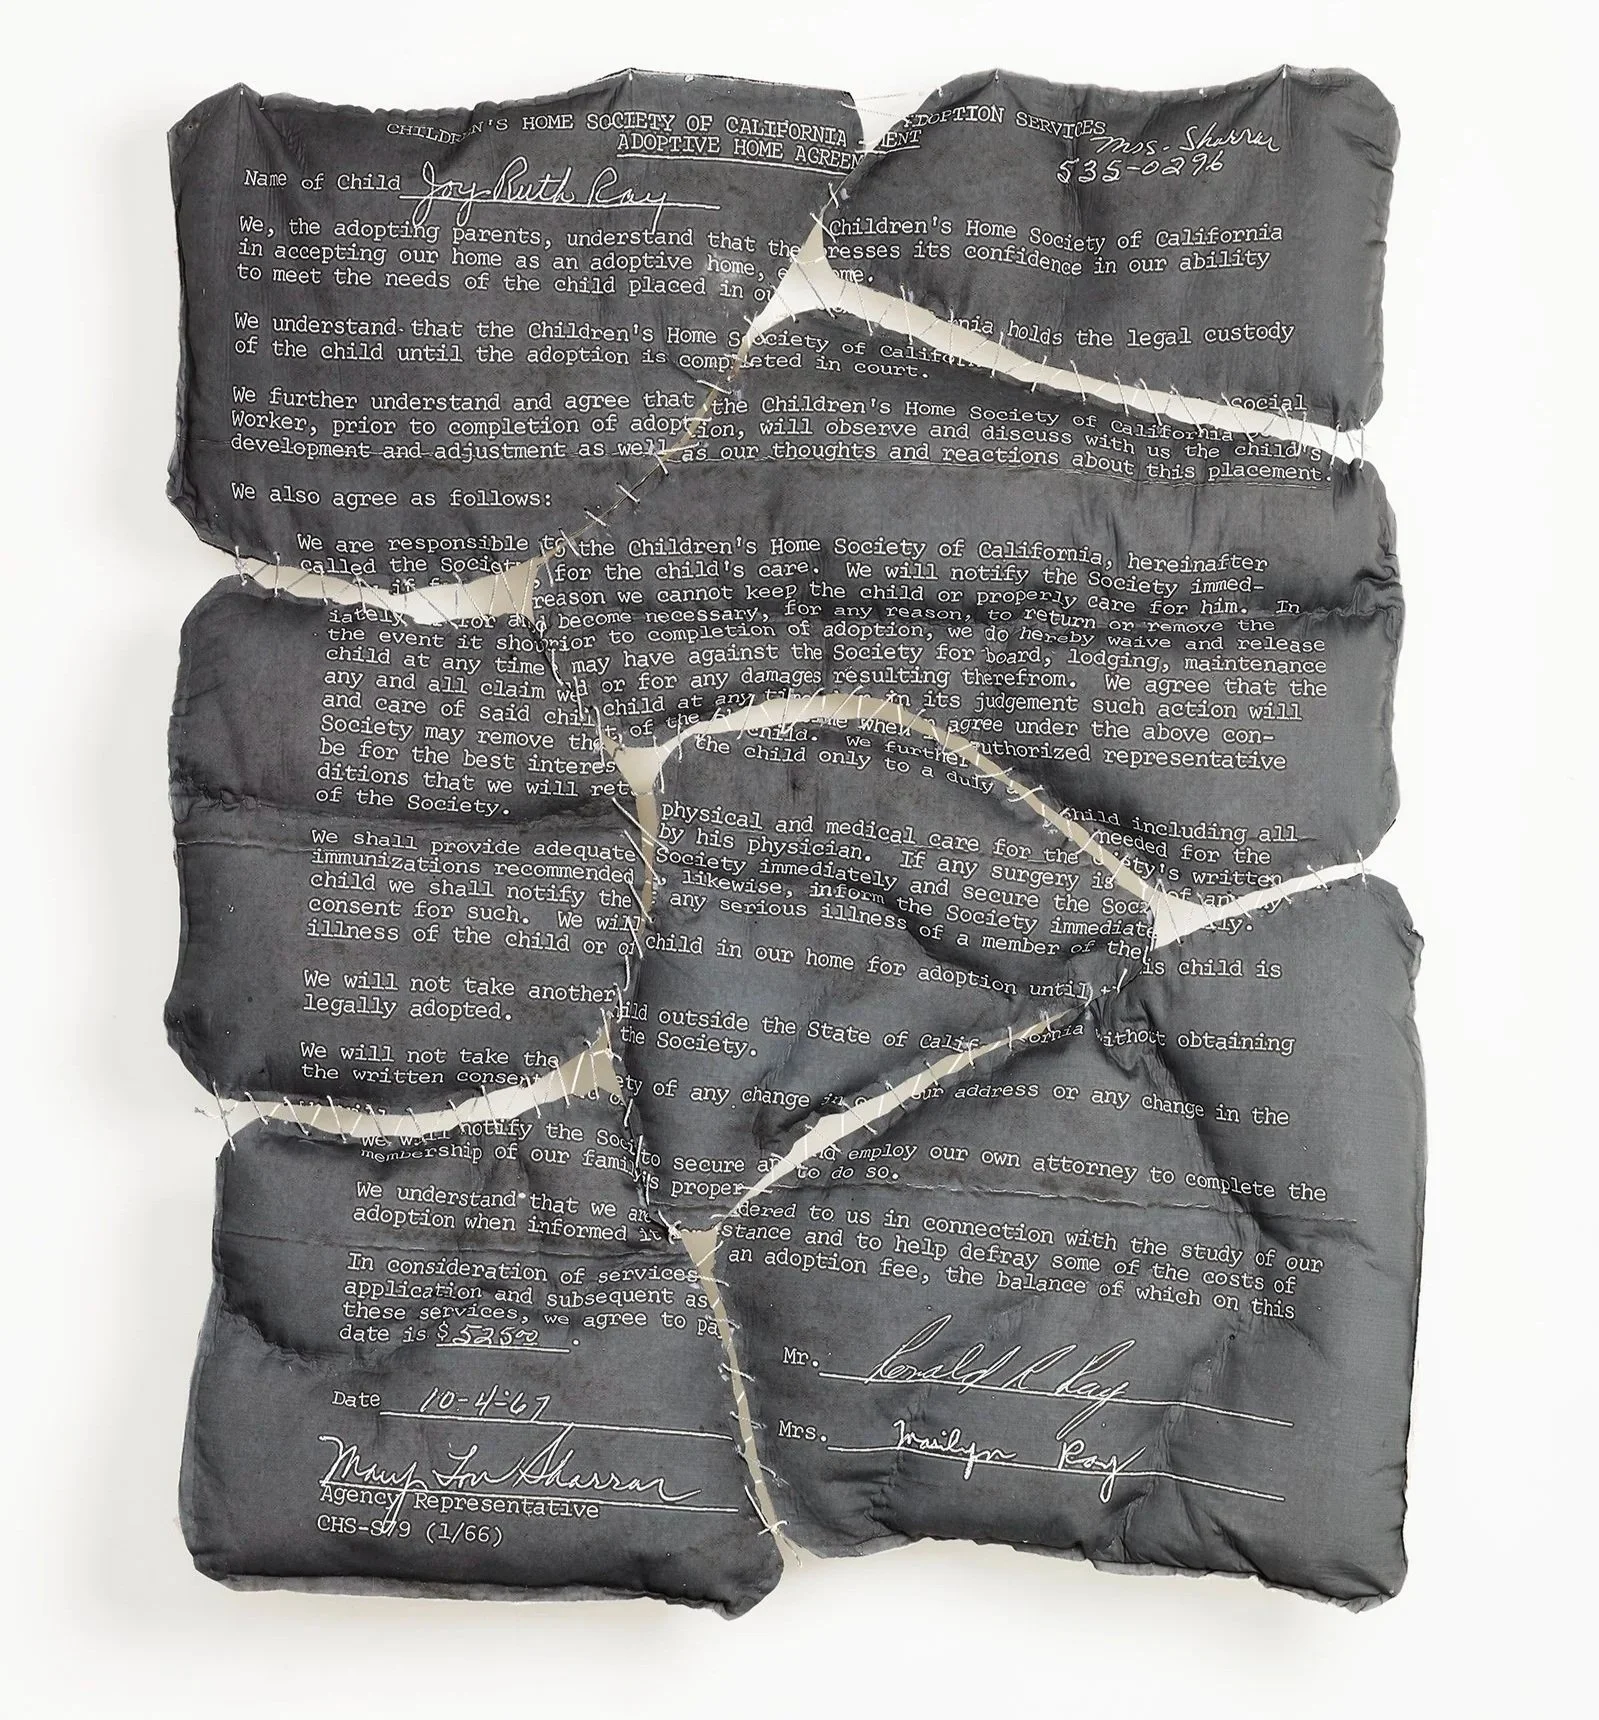 CHILDREN'S HOME SOCIETY OF CALIFORNIA ADOPTION SERVICES
ADOPTIVE HOME AGREEMENT
Mrs. Sharrar
535-0296
Name of Child Joy Ruth Ray
We, the adopting parents, understand that the Children's Home Society of California
in accepting our home as an adoptive home, expresses its confidence in our ability
to meet the needs of the child placed in our home.
We understand that the Children's Home Society of California holds the legal custody
of the child until the adoption is completed in court.
We further understand and agree that the Children's Home Society of California Social
Worker, prior to completion of adoption, will observe and discuss with us the child's
development and adjustment as well as our thoughts and reactions about this placement.
We also agree as follows:
We are responsible to the Children's Home Society of California, hereinafter
called the Society, for the child's care. We will notify the Society immed-
iately if for any reason we cannot keep the child or properly care for him. In
the event it should become necessary, for any reason, to return or remove the
child at any time prior to completion of adoption, we do hereby waive and release
any and all claim we may have against the Society for board, lodging, maintenance
and care of said child or for any damages resulting therefrom. We agree that the
Society may remove the child at any time when in its judgement such action will
be for the best interest of the child. We further agree under the above con-
ditions that we will return the child only to a duly authorized representative
of the Society.
We shall provide adequate physical and medical care for the child including all
immunizations recommended by his physician. If any surgery is needed for the
child we shall notify the Society immediately and secure the Society's written
consent for such. We will, likewise, inform the Society immediately of any
illness of the child or of any serious illness of a member of the family.
We will not take another child in our home for adoption until this child is
legally adopted.
We will not take the child outside the State of California without obtaining
the written consent of the Society.
We will notify the Society of any change in our address or any change in the
membership of our family.
We understand that we are to secure and employ our own attorney to complete the
adoption when informed it is proper to do so.
In consideration of services rendered to us in connection with the study of our
application and subsequent assistance and to help defray some of the costs of
these services, we agree to pay an adoption fee, the balance of which on this
date is $ 525.00 .
Mr. Ronald R Ray
Date 10-4-67
Mrs. Marilyn Ray
Mary Lou Sharrar
Agency Representative
CHS-S79 (1/66)